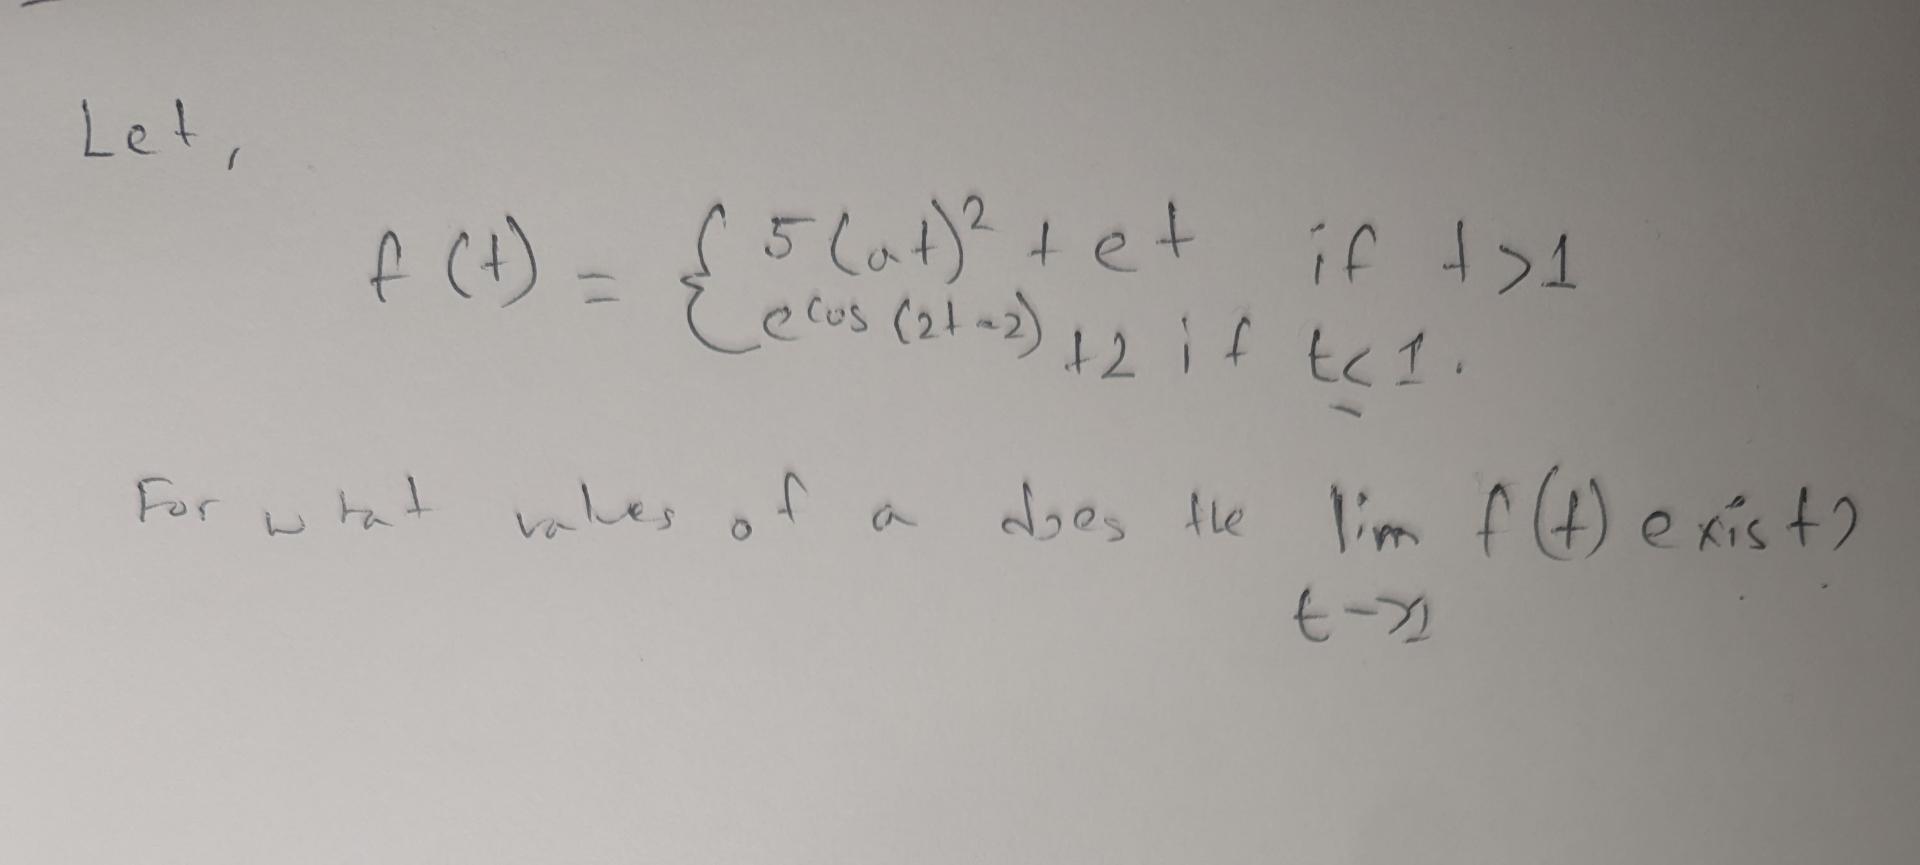 Let,
f(t) = { 5(at)² + et if t>1
ecos(2t-2) +2 if t≤1.
For what values of a does the lim f(t) exist?
t->1